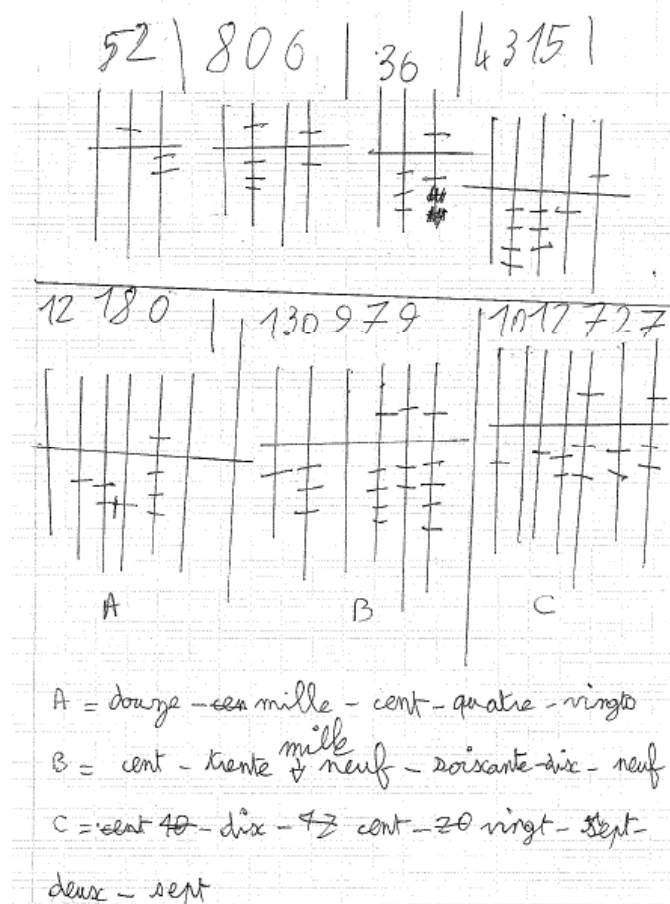 52 | 806 | 36 | 4315 |
12 180 | 130 979 | 1012 727
A B C
A = douze - cen mille - cent - quatre - vingts
mille
B = cent - trente ↓ neuf - soixante-dix - neuf
C = cent 40 - dix - 47 cent - 20 vingt - sept -
deux - sept